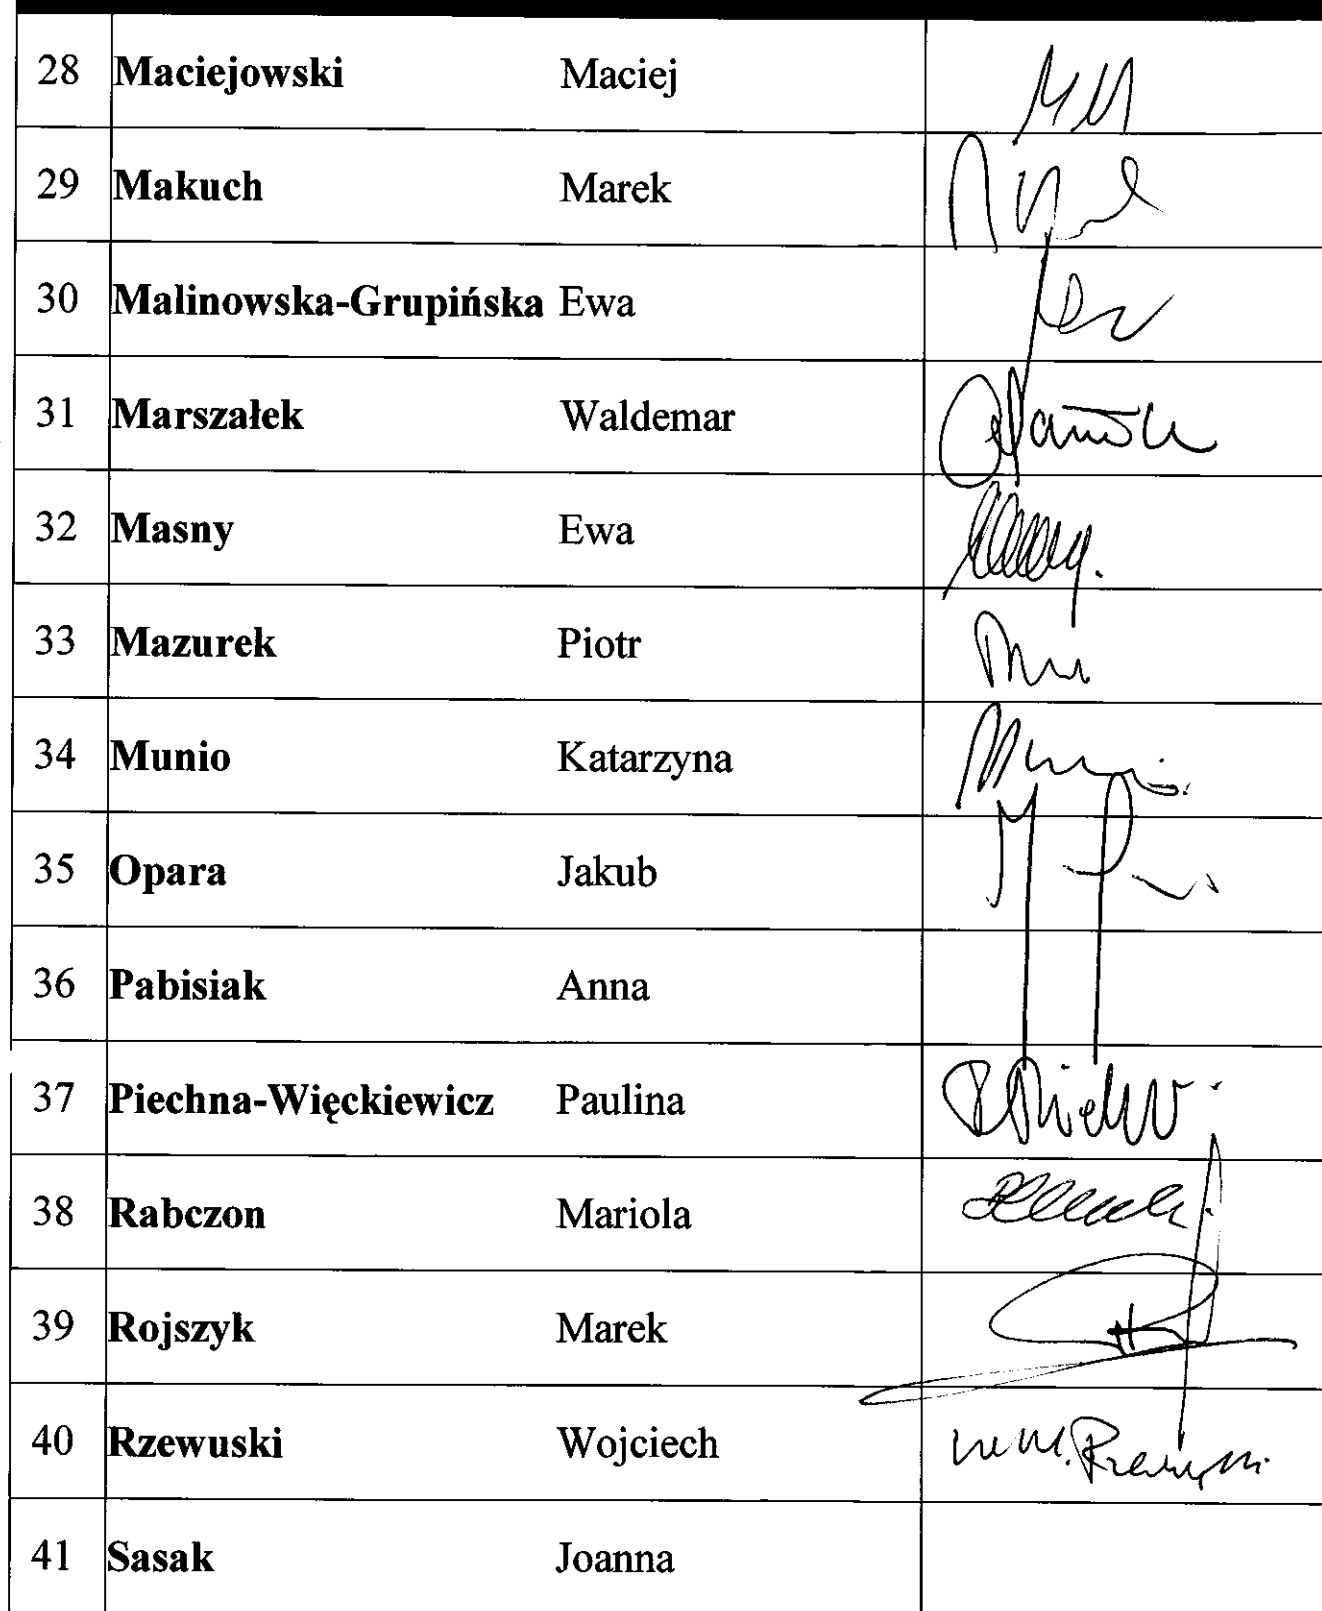 28 Maciejowski Maciej MM
29 Makuch Marek
30 Malinowska-Grupińska Ewa
31 Marszałek Waldemar
32 Masny Ewa
33 Mazurek Piotr
34 Munio Katarzyna
35 Opara Jakub
36 Pabisiak Anna
37 Piechna-Więckiewicz Paulina
38 Rabczon Mariola
39 Rojszyk Marek
40 Rzewuski Wojciech
41 Sasak Joanna